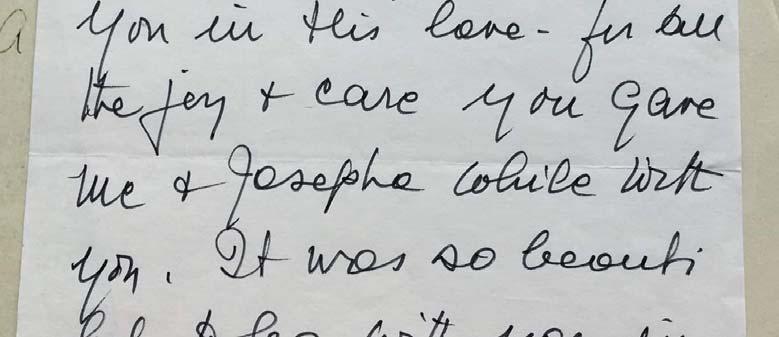 you in this love - for all
the joy & care you gave
me & Josepha while with
you. It was so beauti